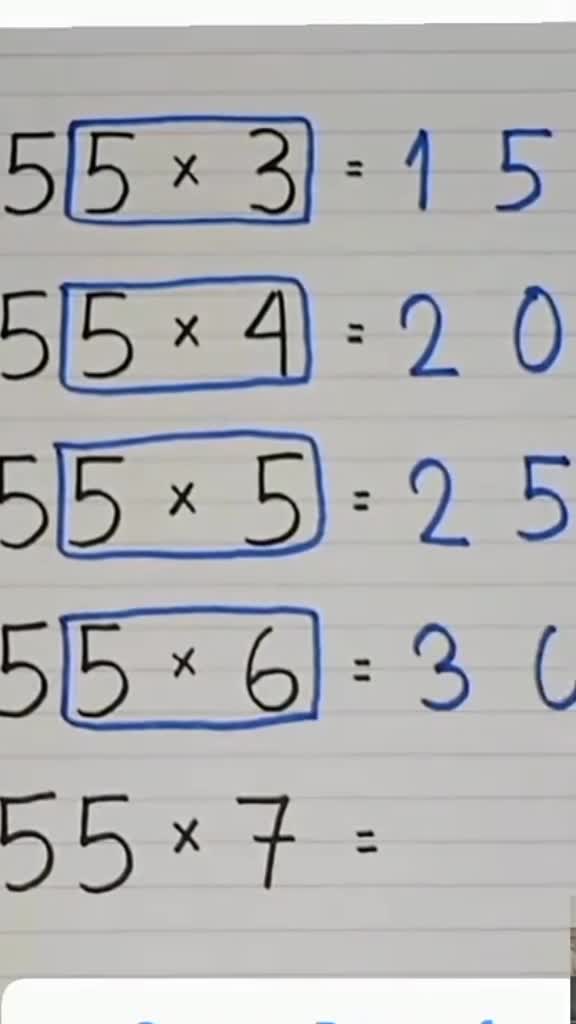 55 × 3 = 1 5
55 × 4 = 2 0
55 × 5 = 2 5
55 × 6 = 3
55 × 7 =